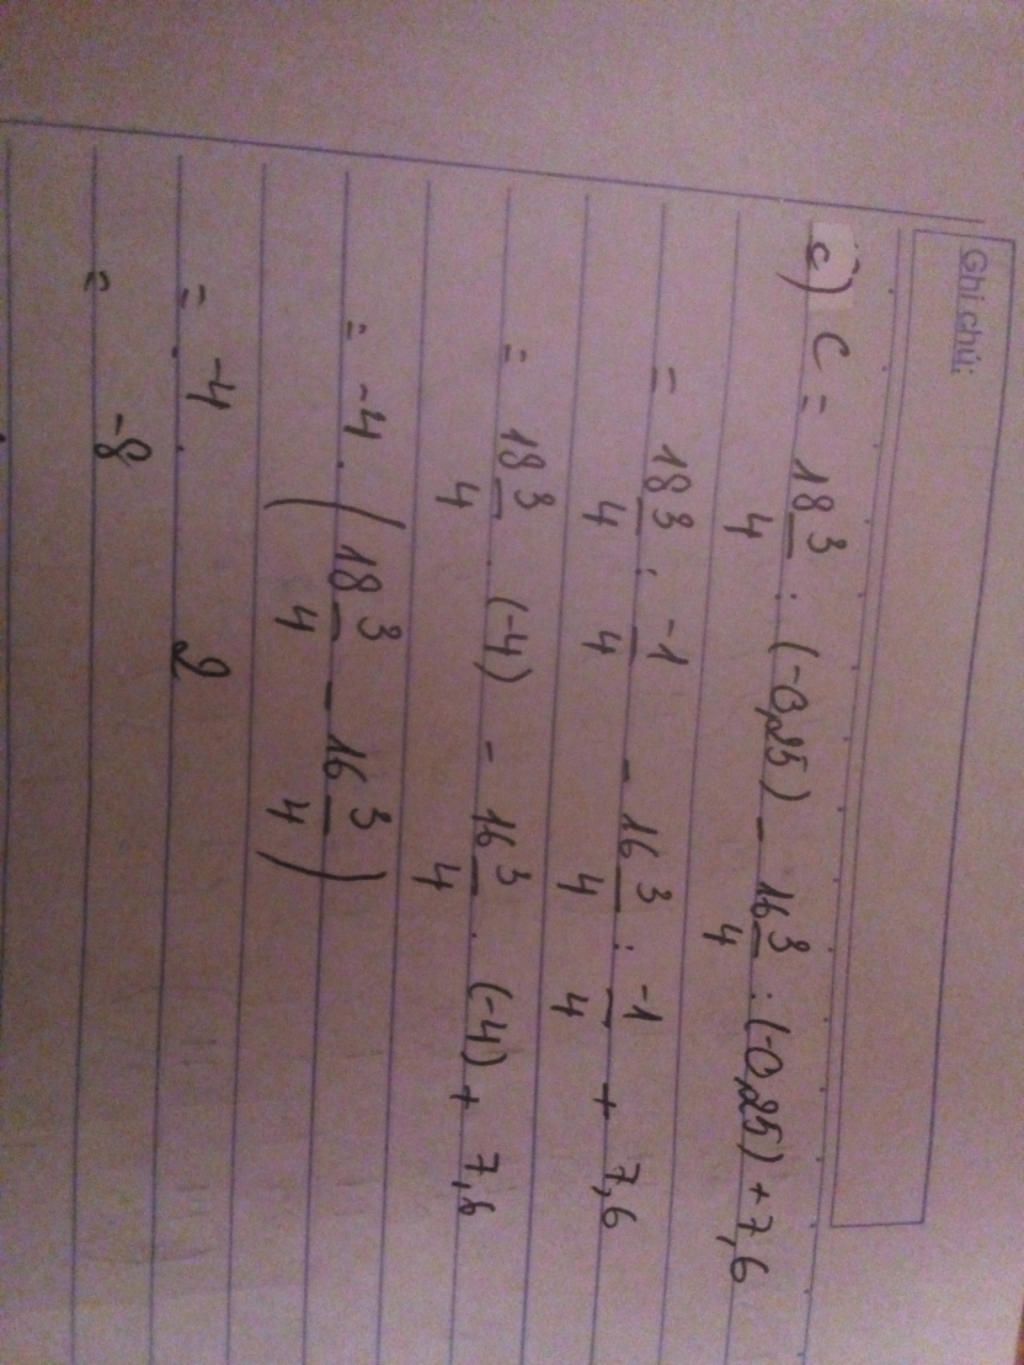 Ghi chú:
c) C = 18 3/4 : (-0,25) - 16 3/4 : (-0,25) + 7,6
= 18 3/4 : -1/4 - 16 3/4 : -1/4 + 7,6
= 18 3/4 . (-4) - 16 3/4 . (-4) + 7,6
= -4 . (18 3/4 - 16 3/4)
= -4 . 2
= -8